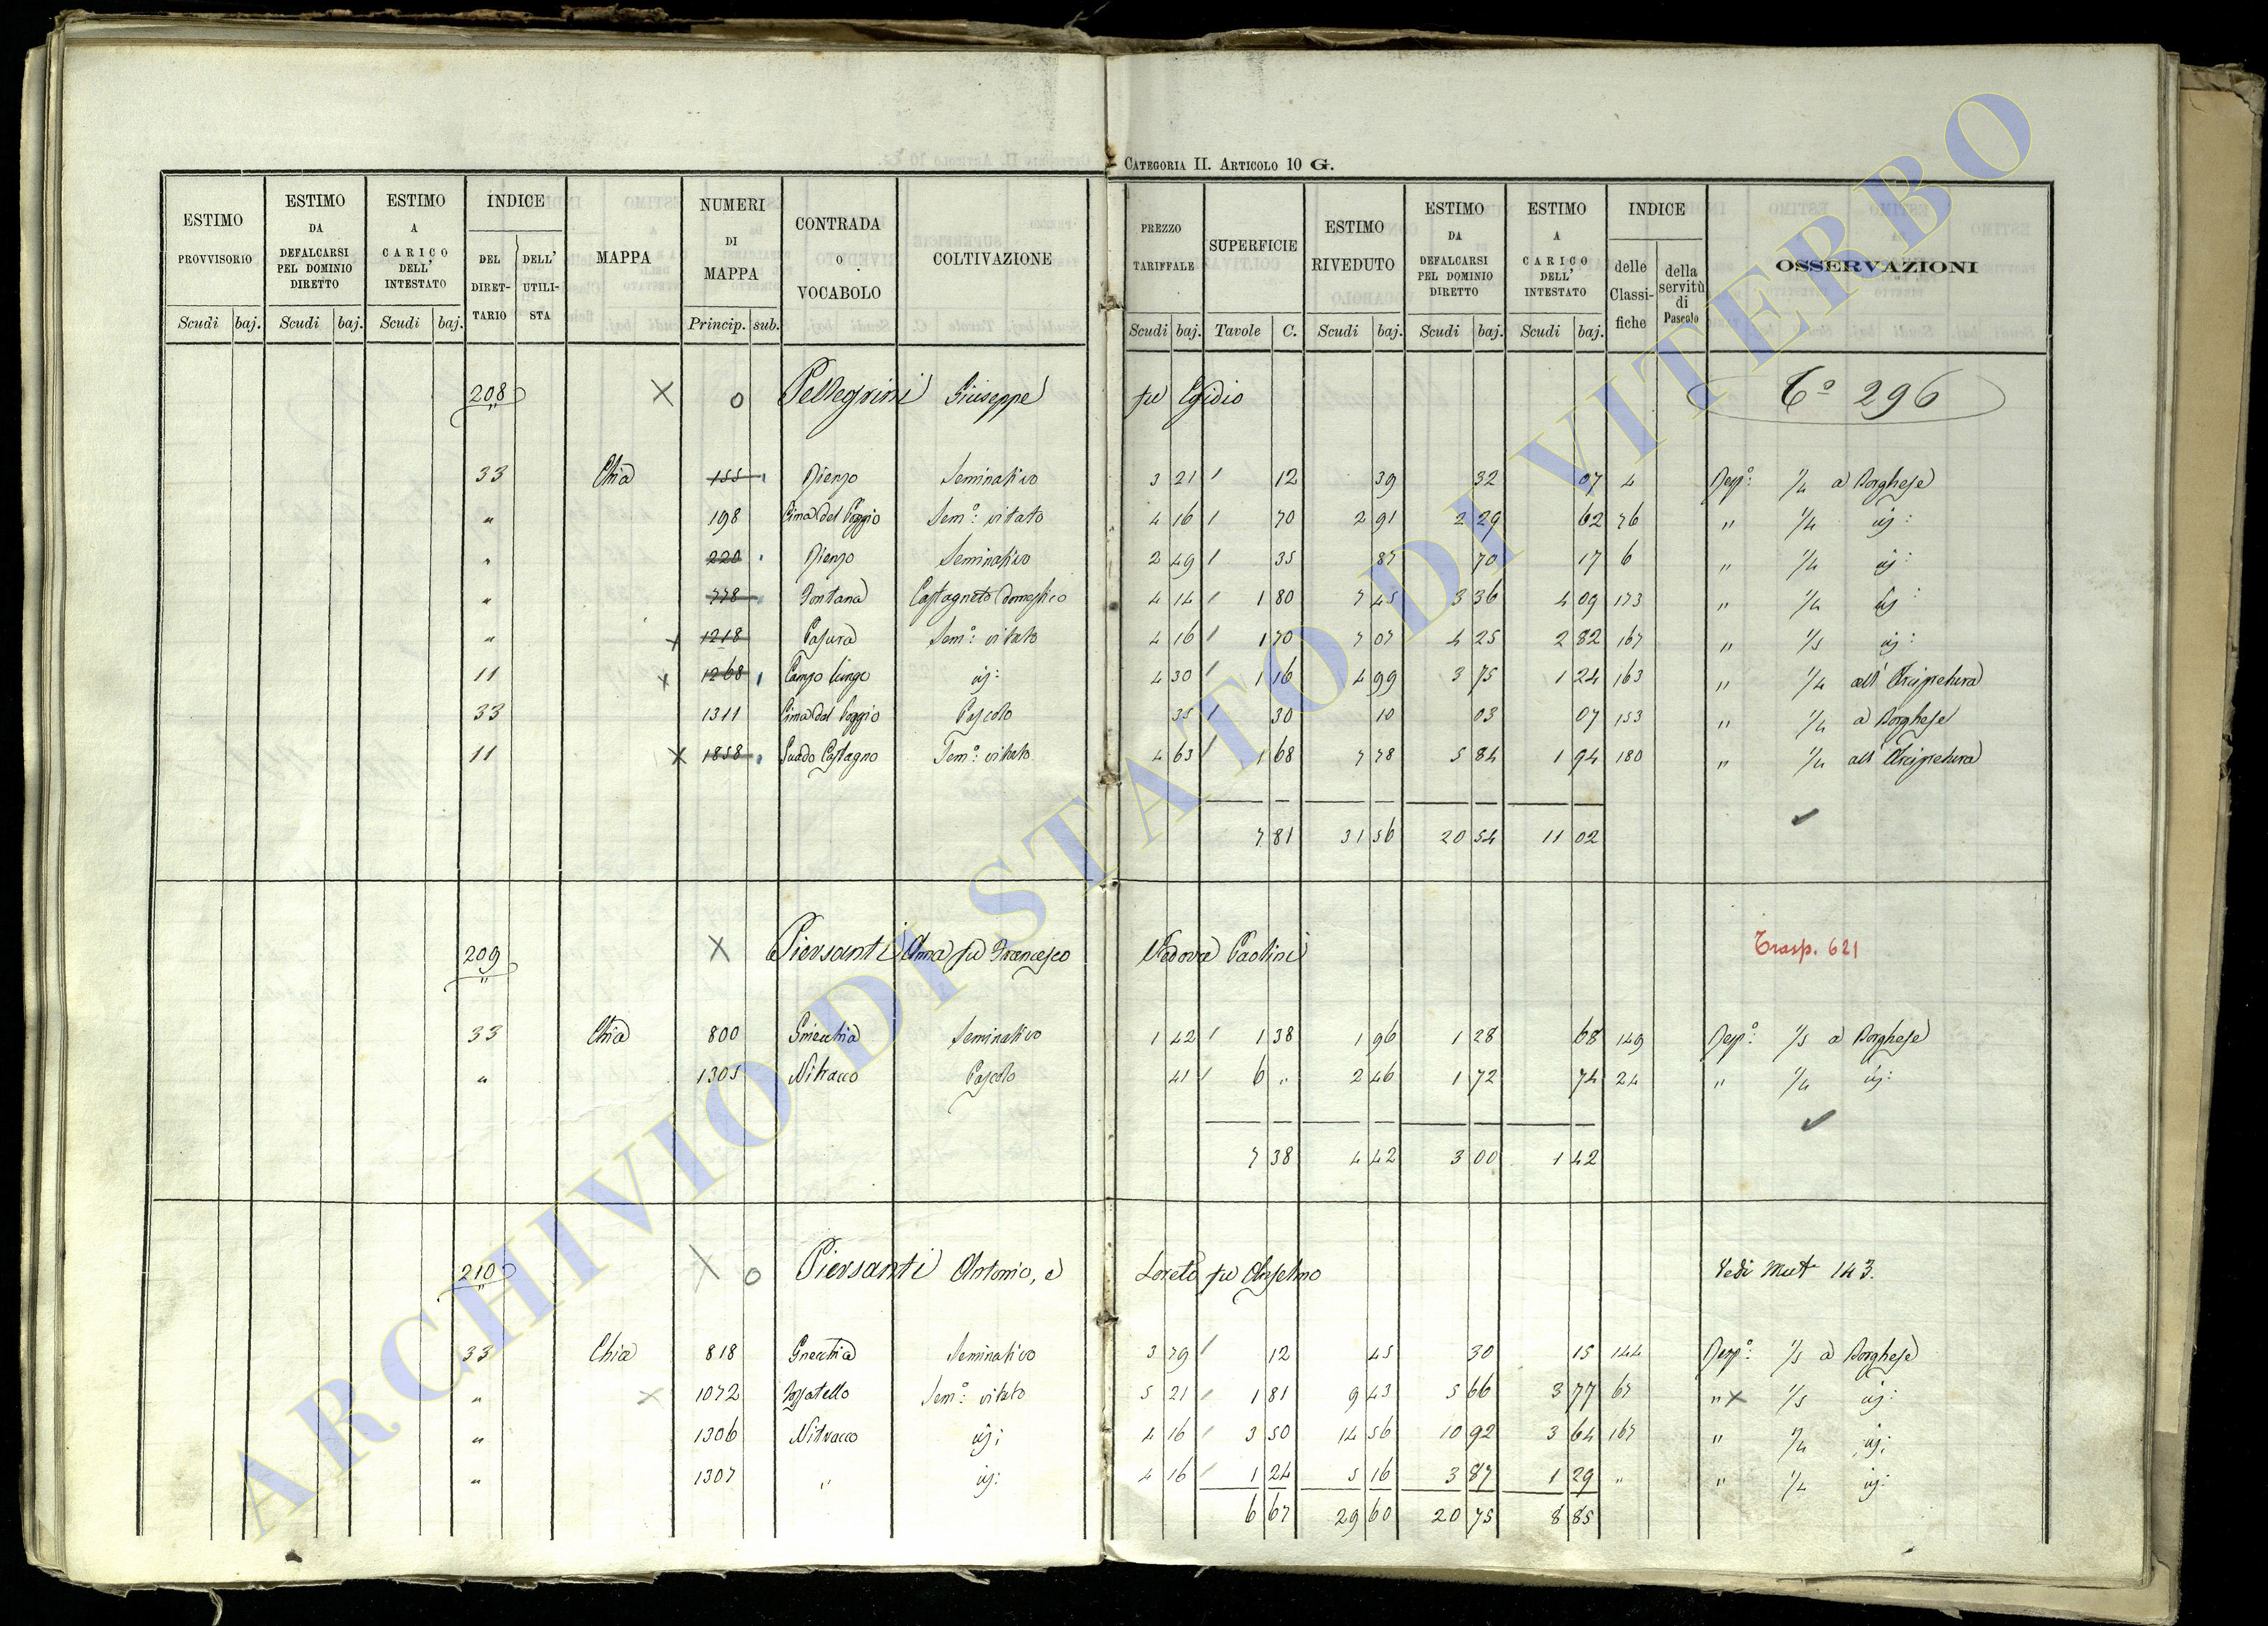 CATEGORIA II. ARTICOLO 10 G.
ESTIMO PROVVISORIO Scudi baj. ESTIMO DA DEFALCARSI PEL DOMINIO DIRETTO Scudi baj. ESTIMO A CARICO DELL' INTESTATO Scudi baj. INDICE DEL DIRETTARIO DELL' UTILISTA MAPPA NUMERI DI MAPPA Princip. sub. CONTRADA O VOCABOLO COLTIVAZIONE PREZZO TARIFFALE Scudi baj. SUPERFICIE Tavole C. ESTIMO RIVEDUTO Scudi baj. ESTIMO DA DEFALCARSI PEL DOMINIO DIRETTO Scudi baj. ESTIMO A CARICO DELL' INTESTATO Scudi baj. INDICE delle Classifiche della servitù di Pascolo OSSERVAZIONI
208 X o Pellegrini Giuseppe fu Egidio Co 296
33 Chia 155 Seminativo 3 21 12 39 32 07 4 Risp: 1/4 a Borghese
" 198 Cima del Poggio Sem: vitato 4 16 70 2 91 2 29 62 76 " 1/4 id:
" 220 Seminativo 2 49 35 87 70 17 6 " 1/4 id:
" 778 Fontana Castagneto domestico 4 14 1 80 7 45 3 36 4 09 173 " 1/4 id:
" x 1218 Sem: vitato 4 16 1 70 7 07 4 25 2 82 167 " 1/5 id:
11 x 1268 Campo lungo id: 4 30 1 16 4 99 3 75 1 24 163 " 1/4 all' Arcipretura
33 1311 Cima del Poggio Pascolo 35 30 10 03 07 153 " 1/4 a Borghese
11 x 1858 Guado Castagno Sem: vitato 4 63 1 68 7 78 5 84 1 94 180 " 1/4 all' Arcipretura
7 81 31 56 20 54 11 02
209 X Piersanti Anna fu Francesco Vedova Paolini Trasp. 621
33 Chia 800 Seminativo 1 42 1 38 1 96 1 28 68 149 Risp: 1/5 a Borghese
" 1305 Nitracco Pascolo 41 6 " 2 46 1 72 74 24 " 1/4 id:
7 38 4 42 3 00 1 42
210 X o Piersanti Antonio, e Loreto fu Anselmo Vedi Mut 143.
33 Chia 818 Seminativo 3 79 12 45 30 15 144 Risp: 1/5 a Borghese
" x 1072 Fossatello Sem: vitato 5 21 1 81 9 43 5 66 3 77 67 " x 1/5 id:
" 1306 Nitracco id: 4 16 3 50 14 56 10 92 3 64 167 " 1/4 id:
" 1307 " id: 4 16 1 24 5 16 3 87 1 29 " " 1/4 id:
6 67 29 60 20 75 8 85
ARCHIVIO DI STATO DI VITERBO